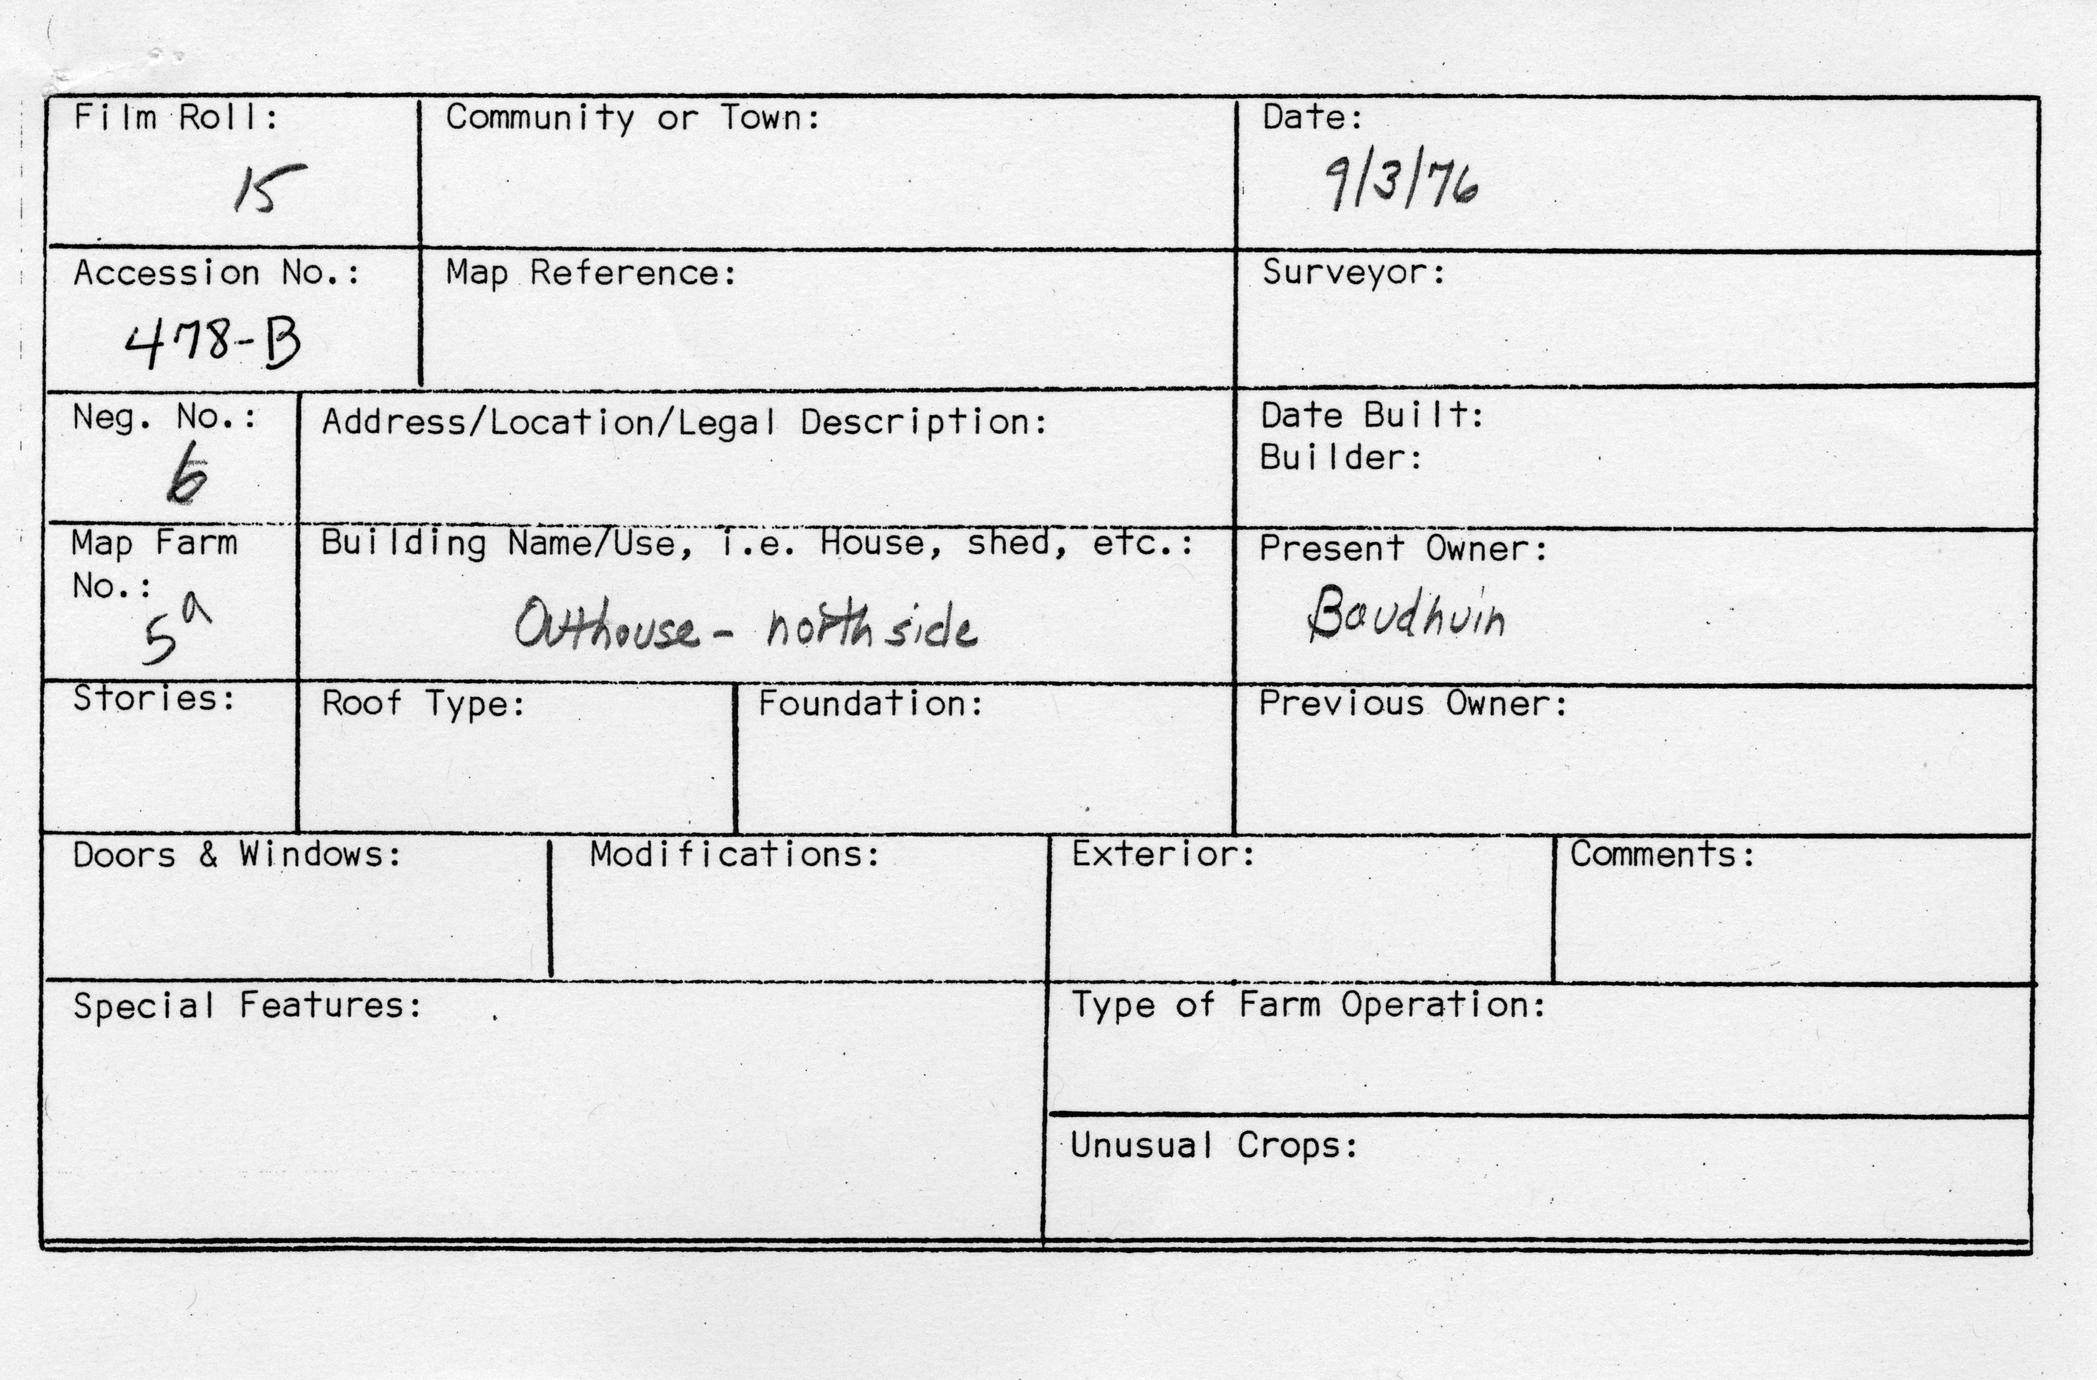 Film Roll:
15
Community or Town:
Date:
9/3/76
Accession No.:
478-B
Map Reference:
Surveyor:
Neg. No.:
6
Address/Location/Legal Description:
Date Built:
Builder:
Map Farm
No.:
5a
Building Name/Use, i.e. House, shed, etc.:
Outhouse - north side
Present Owner:
Baudhuin
Stories:
Roof Type:
Foundation:
Previous Owner:
Doors & Windows:
Modifications:
Exterior:
Comments:
Special Features:
Type of Farm Operation:
Unusual Crops: